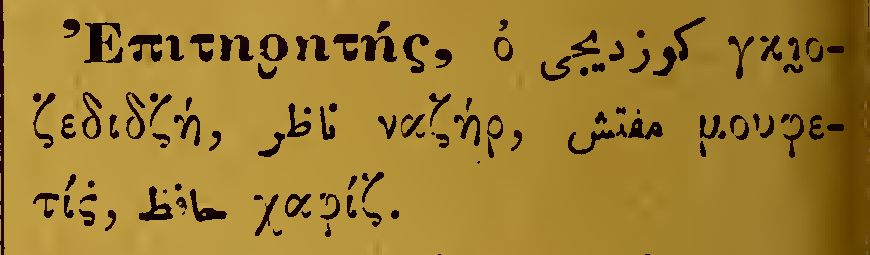 Ἐπιτηρητής, ὁ كوزديجى γκιο-
ζεδιδζή, ناظر ναζήρ, مفتش μουφε-
τίς̇, حافظ χαφίζ.